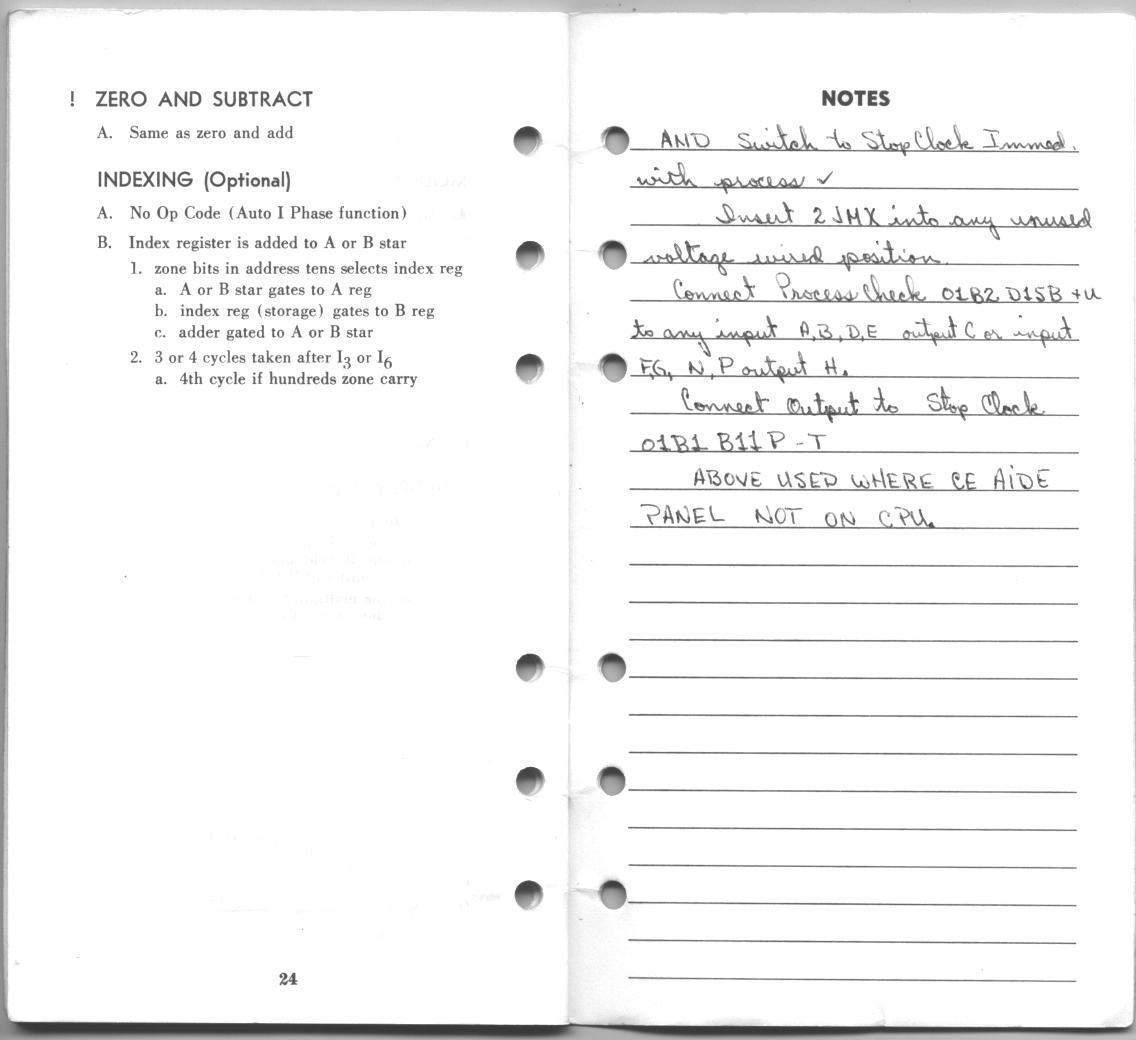 ! ZERO AND SUBTRACT
A. Same as zero and add
INDEXING (Optional)
A. No Op Code (Auto I Phase function)
B. Index register is added to A or B star
1. zone bits in address tens selects index reg
a. A or B star gates to A reg
b. index reg (storage) gates to B reg
c. adder gated to A or B star
2. 3 or 4 cycles taken after I3 or I6
a. 4th cycle if hundreds zone carry
24
NOTES
AND Switch to Stop Clock Immed.
with process ✓
Insert 2 JMX into any unused
voltage wired position.
Connect Process Check 01B2 D15B +U
to any input A,B,D,E output C or input
F,G, N,P output H.
Connect Output to Stop Clock
01B1 B11P -T
ABOVE USED WHERE CE AIDE
PANEL NOT ON CPU.